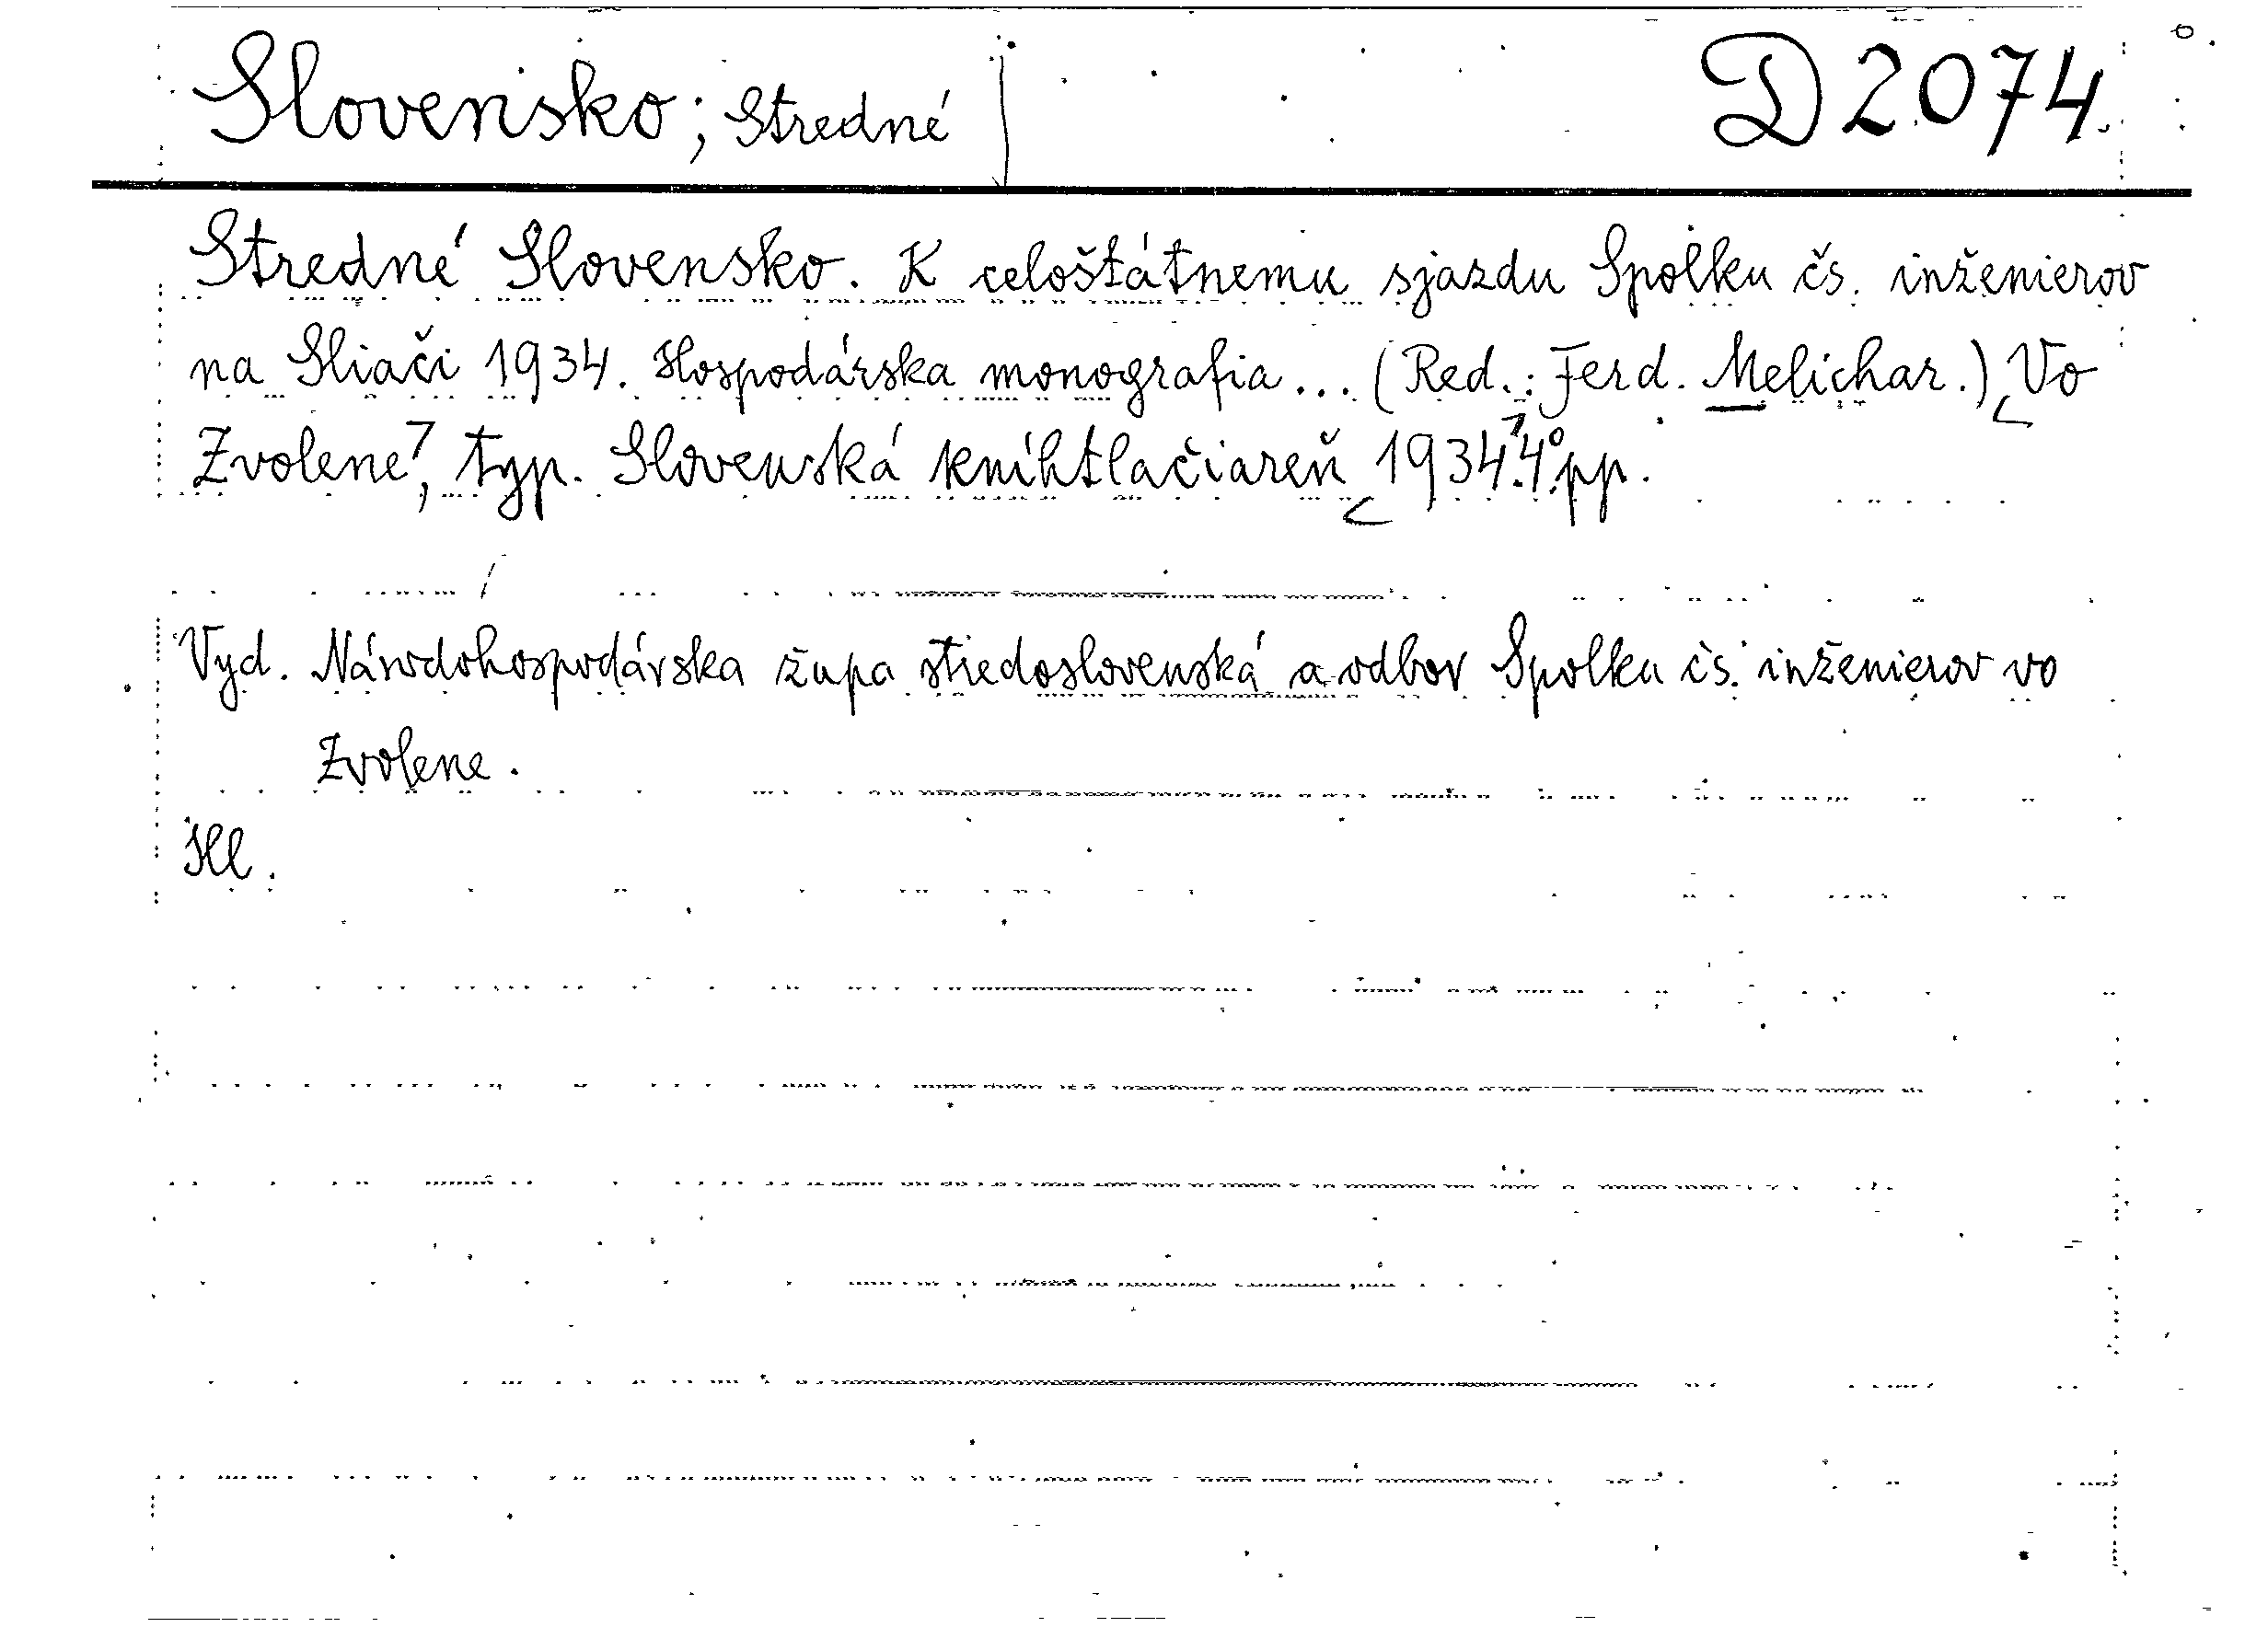 Slovensko; Stredné D 2074
Stredné Slovensko. K celoštátnemu sjazdu Spolku čs. inženierov
na Sliači 1934. Hospodárska monografia... (Red.: Ferd. Melichar.) Vo
Zvolene, typ. Slovenská kníhtlačiareň 1934. 4° pp.
Vyd. Národohospodárska župa středoslovenská a odbor Spolku čs. inženierov vo
Zvolene.
Ill.